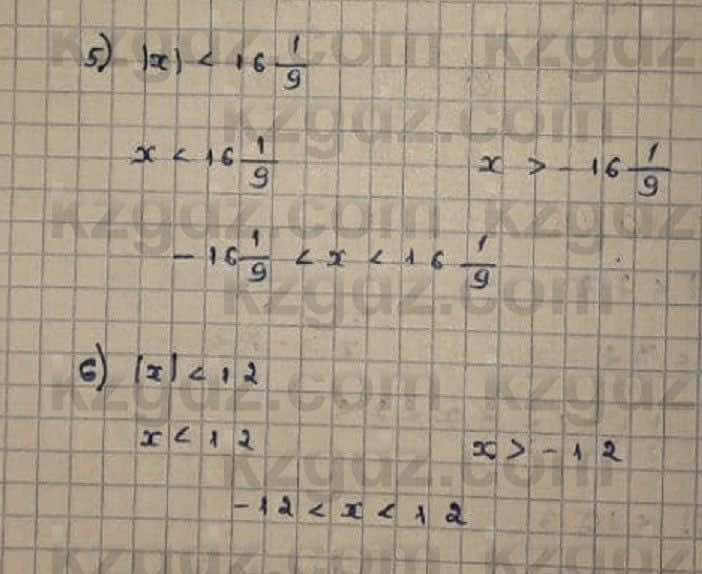 5) |x| < 16 1/9
x < 16 1/9    x > -16 1/9
-16 1/9 < x < 16 1/9
6) |x| < 12
x < 12    x > -12
-12 < x < 12
kzgdz.com kzgdz
kzgdz.com
kzgdz.com kzgdz
kzgdz.com
kzgdz.com kzgdz
kzgdz.com
kzgdz.com kzgdz